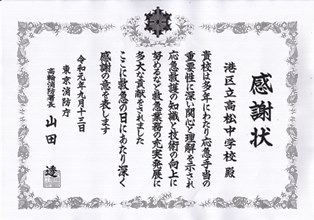 感謝状
港区立高松中学校 殿
貴校は多年にわたり応急手当の
重要性に深い関心と理解を示され
応急救護の知識と技術の向上に
努めるなど救急業務の充実発展に
多大な貢献をされました
ここに救急の日にあたり深く
感謝の意を表します
令和元年九月十三日
東京消防庁
高輪消防署長 山田